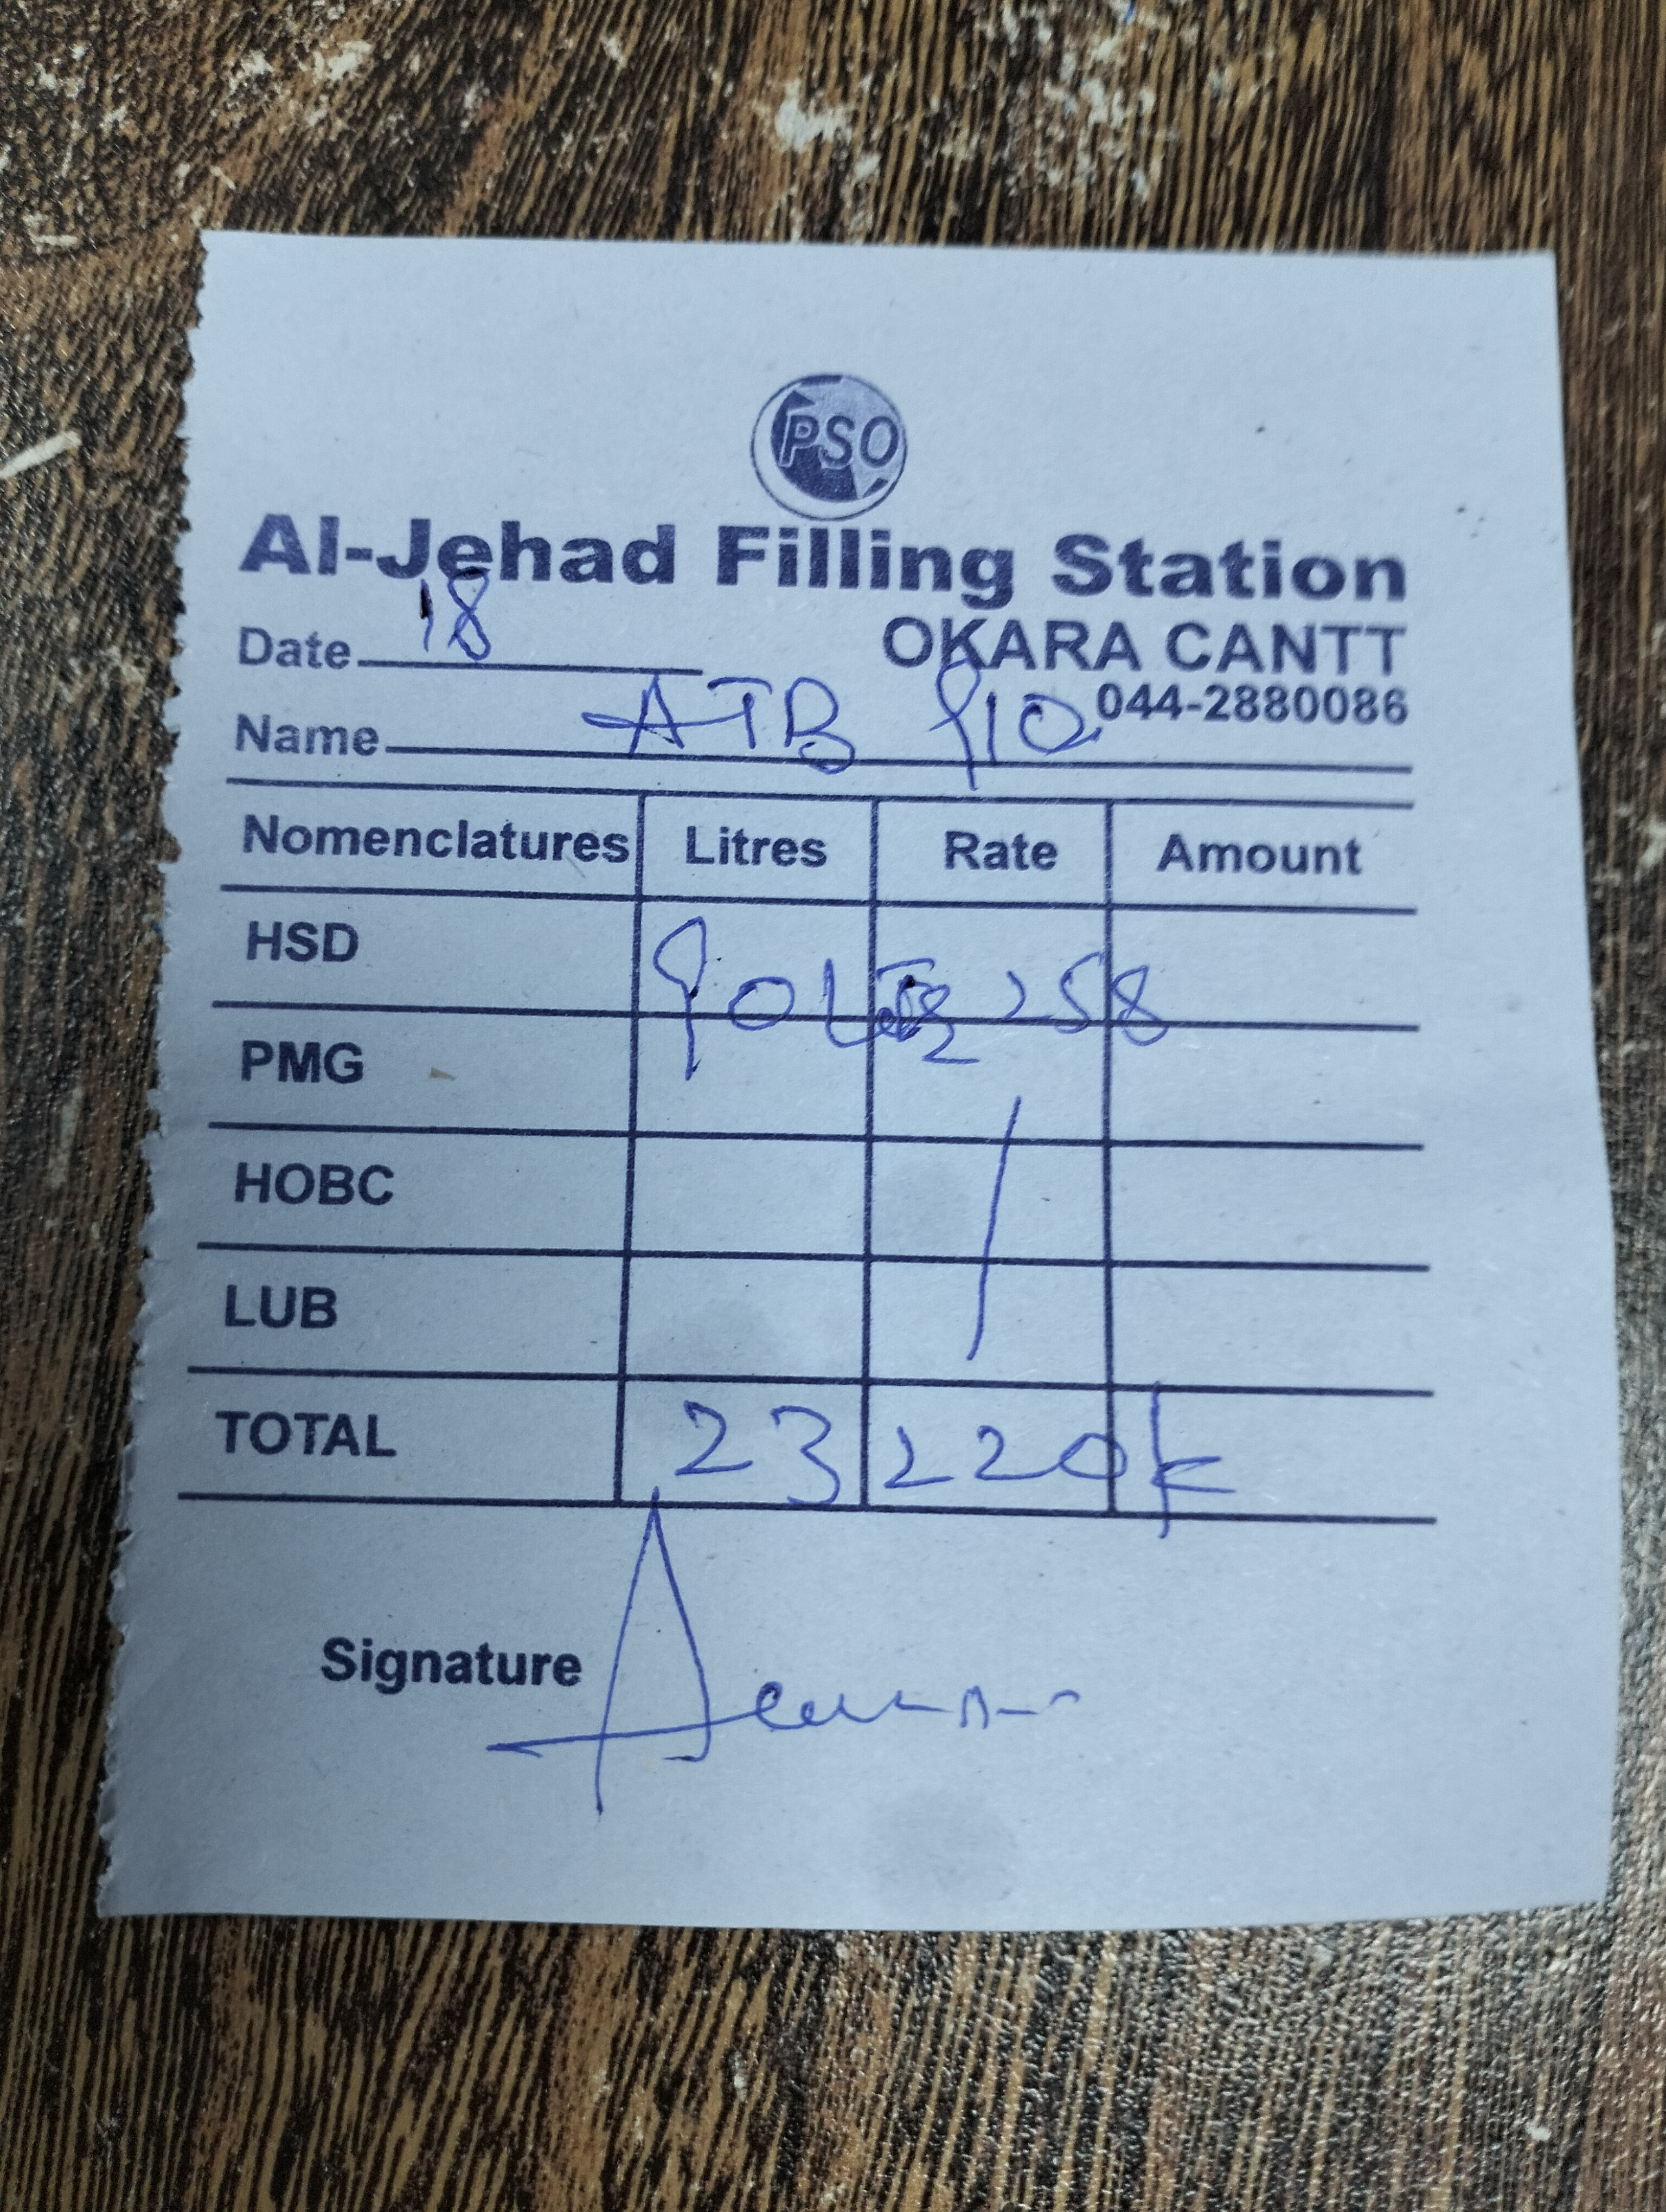 PSO
Al-Jehad Filling Station
Date 18 OKARA CANTT
044-2880086
Name ATB 910
Nomenclatures Litres Rate Amount
HSD 90 258
PMG
HOBC
LUB
TOTAL 23220
Signature